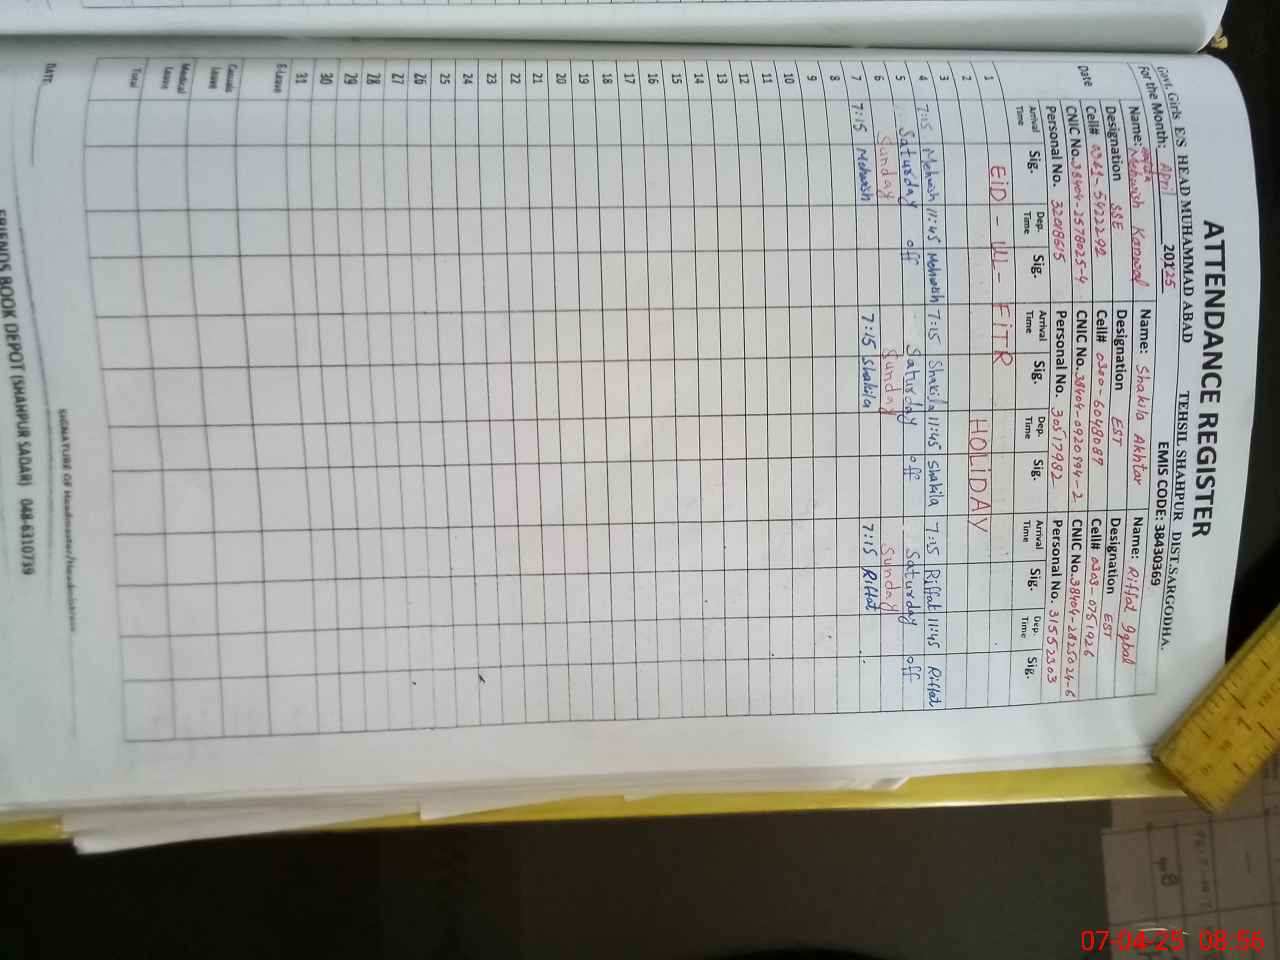 ATTENDANCE REGISTER
Govt. Girls E/S HEAD MUHAMMAD ABAD TEHSIL SHAHPUR DIST.SARGODHA.
For the Month: April 20125 EMIS CODE: 38430369
Name: Mehwish Kanwal Name: Shakila Akhtar Name: Riffat Iqbal
Designation SSE Designation EST Designation EST
Cell# 0341-5422292 Cell# 0300-6048087 Cell# 0303-0751926
CNIC No. 38404-2578025-4 CNIC No. 38404-0920994-2 CNIC No. 38404-2825024-6
Personal No. 32018615 Personal No. 30517982 Personal No. 31552303
Date Arrival Time Sig. Dep. Time Sig. Arrival Time Sig. Dep. Time Sig. Arrival Time Sig. Dep. Time Sig.
1 EID - UL - FITR
2 HOLIDAY
3
4 7:15 Mehwish 11:45 Mehwish 7:15 Shakila 11:45 Shakila 7:15 Riffat 11:45 Riffat
5 Saturday off Saturday off Saturday off
6 Sunday Sunday Sunday
7 7:15 Mehwish 7:15 Shakila 7:15 Riffat
8
9
10
11
12
13
14
15
16
17
18
19
20
21
22
23
24
25
26
27
28
29
30
31
E-Leave
Casuals Leave
Medical Leave
Total
DATE: SIGNATURE OF Headmaster/Headmistress
FRIENDS BOOK DEPOT (SHAHPUR SADAR) 048-6310739
07-04-25 08:56